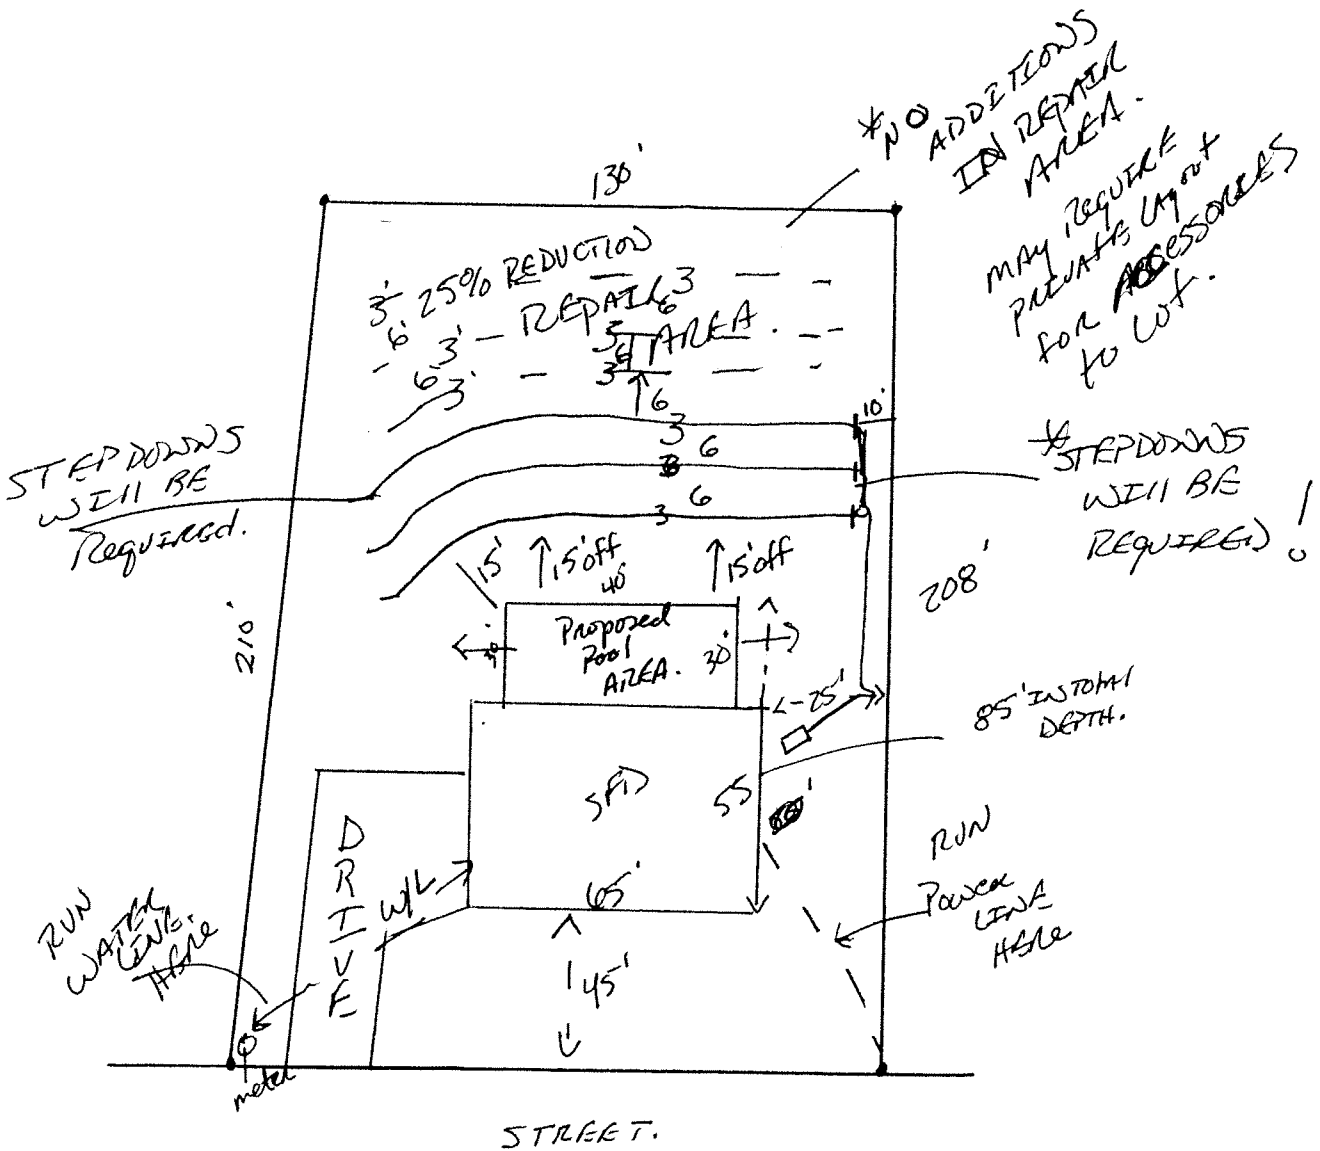 *NO ADDITIONS
IN REPAIR
AREA.
MAY REQUIRE
PRIVATE LAYOUT
FOR ACCESSORIES
TO LOT.
130'
3' 25% REDUCTION
3
6' 3' REPAIR 6
3 AREA.
6
6' 3' 3
6
10'
3
6
3
6
3
STEPDOWNS
WILL BE
REQUIRED.
*STEPDOWNS
WILL BE
REQUIRED!
15'
15'off
15'off
208'
210'
Proposed
Pool
AREA.
30'
30'
25'
85' IN TOTAL
DEPTH.
SFD
55'
65'
DRIVE
W/L
RUN
WATER
LINE
HERE
RUN
POWER
LINE
HERE
45'
meter
STREET.